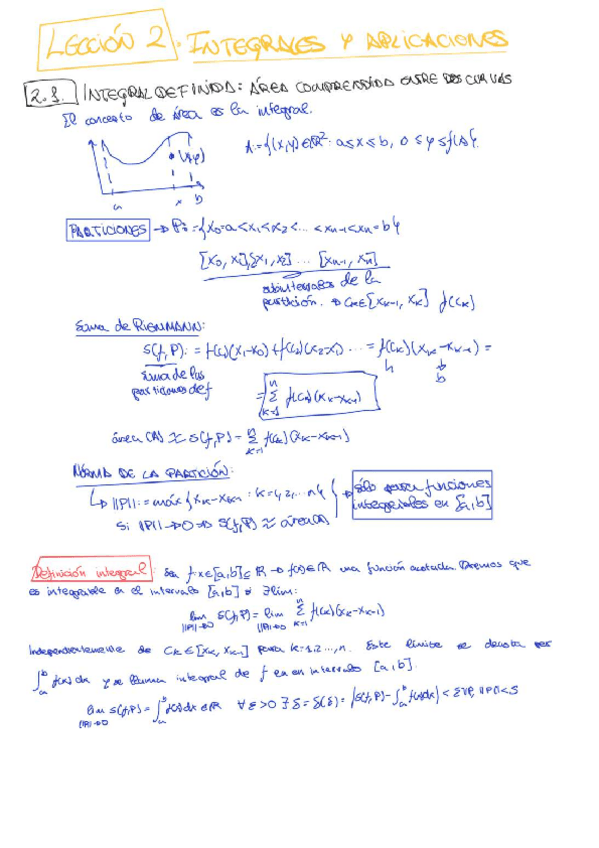 LECCIÓN 2. INTEGRALES Y APLICACIONES
2.1. INTEGRAL DEFINIDA: ÁREA COMPRENDIDA ENTRE DOS CURVAS
El concepto de área es la integral.
A:={(x,y)∈ℝ²: a≤x≤b, 0≤y≤f(x)}.
(x,y)
a x b
PARTICIONES → P:={x₀=a<x₁<x₂<... <xₙ₋₁<xₙ=b}
[x₀, x₁], [x₁, x₂] ... [xₙ₋₁, xₙ]
subintervalos de la
partición. → Cₖ∈[xₖ₋₁, xₖ] f(Cₖ)
Suma de RIENMANN:
S(f,P):= f(C₁)(x₁-x₀)+f(C₂)(x₂-x₁) ... = f(Cₖ)(xₖ-xₖ₋₁) =
suma de las h b
particiones de f b
= Σₖ₌₁ⁿ f(Cₖ)(xₖ-xₖ₋₁)
área (A) ≈ S(f,P) = Σₖ₌₁ⁿ f(Cₖ)(xₖ-xₖ₋₁)
NORMA DE LA PARTICIÓN:
↳ ||P||:= máx {xₖ-xₖ₋₁ : k=1,2,...n} → sólo para funciones
Si ||P||→0 → S(f,P) ≈ área(A) integrables en [a,b]
Definición integral: Sea f: x∈[a,b]⊆ℝ → f(x)∈ℝ una función acotada. Diremos que
es integrable en el intervalo [a,b] si ∃ lim:
lim ||P||→0 S(f,P) = lim ||P||→0 Σₖ₌₁ⁿ f(Cₖ)(xₖ-xₖ₋₁)
Independientemente de Cₖ∈[xₖ, xₖ₋₁] para k=1,2...,n. Este límite se denota por
∫ₐᵇ f(x)dx y se llama integral de f en el intervalo [a,b].
lim ||P||→0 S(f,P) = ∫ₐᵇ f(x)dx ∈ℝ ∀ε>0 ∃δ=δ(ε) = |S(f,P) - ∫ₐᵇ f(x)dx| < ε ∀P, ||P||<δ